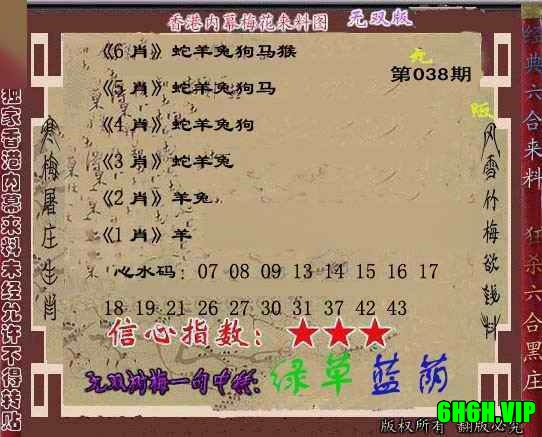 香港内幕梅花来料图 无双版
《6 肖》蛇羊兔狗马猴
无
第038期
《5 肖》蛇羊兔狗马
版
《4 肖》蛇羊兔狗
《3 肖》蛇羊兔
《2 肖》羊兔
《1 肖》羊
心水码: 07 08 09 13 14 15 16 17
18 19 21 26 27 30 31 37 42 43
信心指数: ★★★
绿草蓝荫
版权所有 翻版必究
6H6H.VIP
独家香港内幕来料未经允许不得转贴
寒梅屠庄生肖
风雪竹梅欲钱料
经典六合来料
狂杀六合黑庄